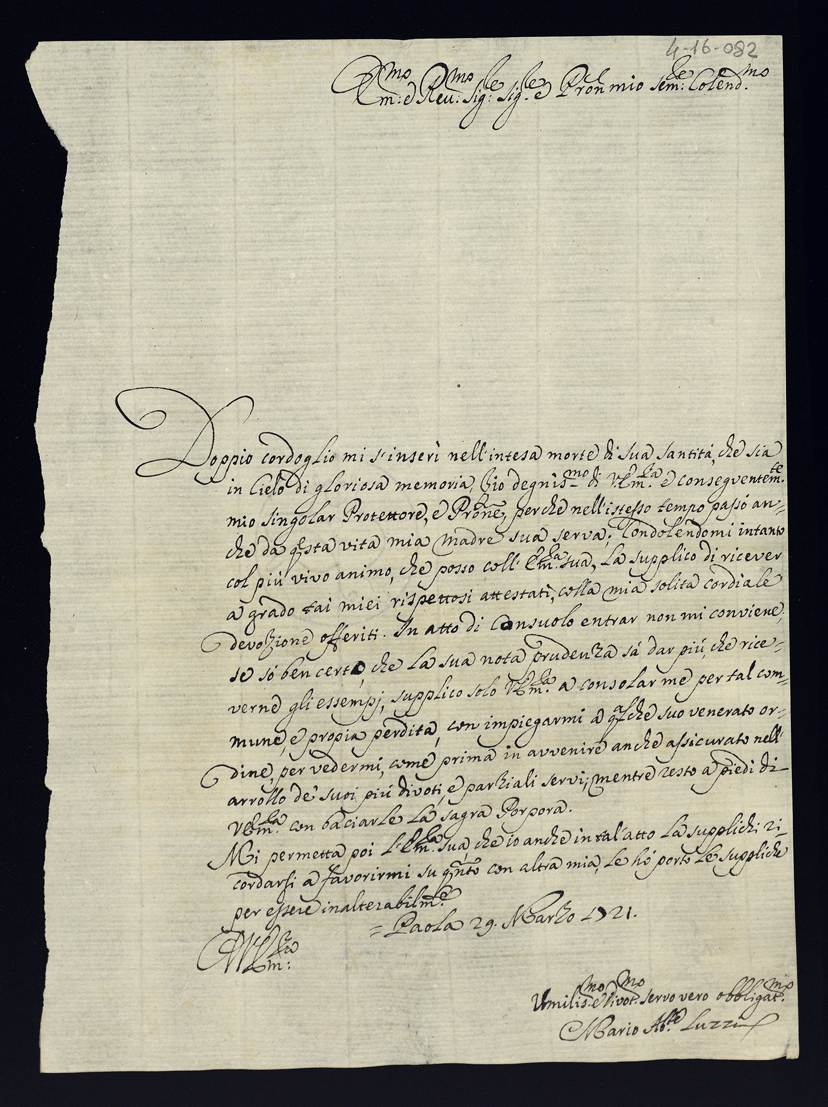 4-16-092
Em:mo e Reu:mo Sig:re Sig:re e Pron̄ mio sem:re Colend:mo
Doppio cordoglio mi s'inserì nell'intesa morte di sua santità, che sia
in Cielo di gloriosa memoria, Zio degnis:mo di V:Em:za e conseguentem:te
mio singolar Protettore, e Prōne, perche nell'istesso tempo passò an=
che da q̄sta vita mia madre sua serva. Condolendomi intanto
col più vivo animo, che posso coll'Em:za sua, La supplico di ricever
a grado tai miei rispettosi attestati, colla mia solita cordiale
devozione offeriti. In atto di Consuolo entrar non mi conviene,
se sò ben certo, che La sua nota prudenza sà dar più, che rice=
verne gli essempj, supplico solo V:Em:za a consolar me per tal com=
mune, e propia perdita, con impiegarmi a q̄lche suo venerato or=
dine, per vedermi, come prima in avvenire anche assicurato nell'
arrollo de' suoi più divoti, e parziali servi; mentre resto a piedi di
V:Em:za con baciarle La sagra Porpora.
Mi permetta poi l'Em:za sua, che io anche in tal'atto La supplichi ri=
cordarsi a favorirmi su q̄nto con altra mia, Le hò porto Le suppliche
per essere inalterabilm:te
= Paola 29. Marzo 1721.
Em:
Umilis:mo e Divot:mo servo vero obbligat:mo
Mario Ab:te Luzzi